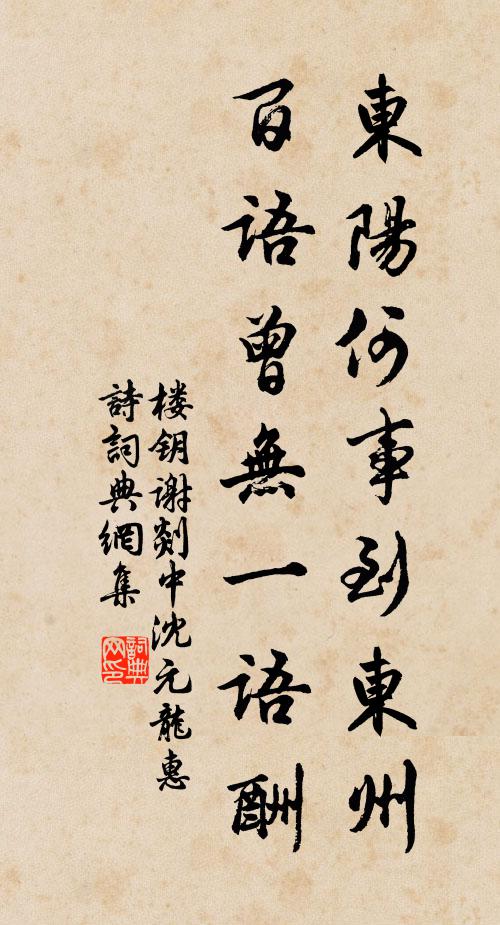 東陽何事到東州
百語曾無一語酬
楼钥谢剡中沈元龍惠
詩詞典網集
詞典网印